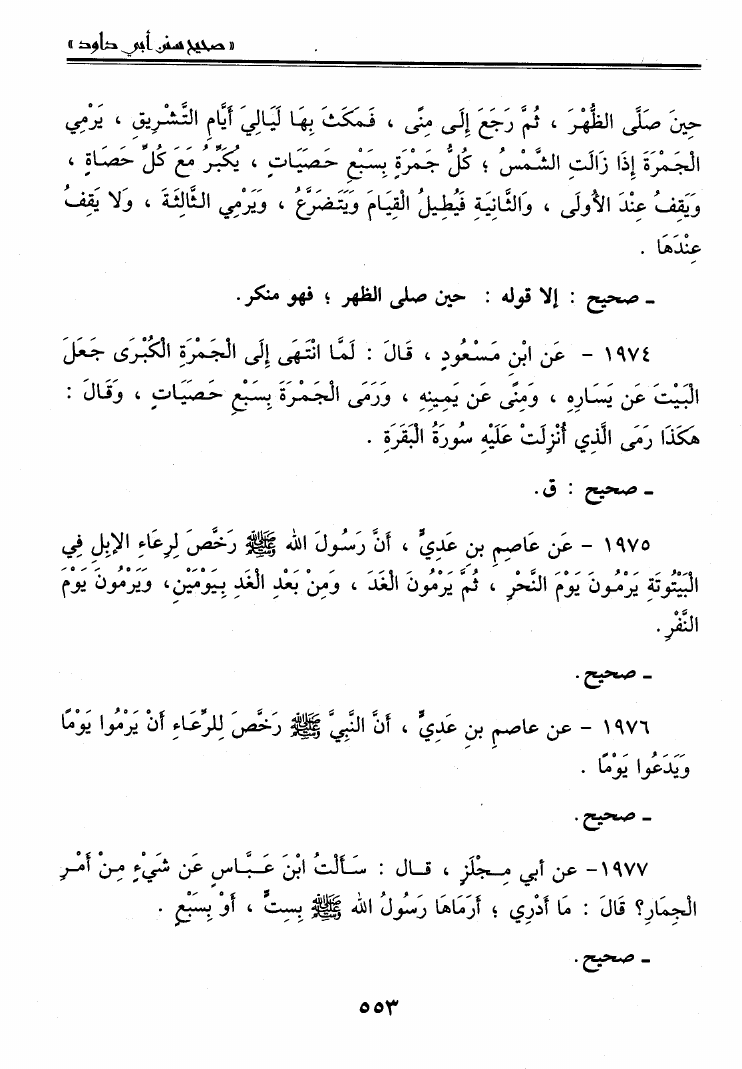 « صحيح سنن أبي داود »
حِينَ صَلَّى الظُّهْرَ ، ثُمَّ رَجَعَ إِلَى مِنًى ، فَمَكَثَ بِهَا لَيَالِيَ أَيَّامِ التَّشْرِيقِ ، يَرْمِي
الْجَمْرَةَ إِذَا زَالَتِ الشَّمْسُ ؛ كُلُّ جَمْرَةٍ بِسَبْعِ حَصَيَاتٍ ، يُكَبِّرُ مَعَ كُلِّ حَصَاةٍ ،
وَيَقِفُ عِنْدَ الأُولَى ، وَالثَّانِيَةِ فَيُطِيلُ الْقِيَامَ وَيَتَضَرَّعُ ، وَيَرْمِي الثَّالِثَةَ ، وَلا يَقِفُ
عِنْدَهَا .
ـ صحيح : إلا قوله : حين صلى الظهر ؛ فهو منكر.
١٩٧٤ - عَنِ ابْنِ مَسْعُودٍ ، قَالَ : لَمَّا انْتَهَى إِلَى الْجَمْرَةِ الْكُبْرَى جَعَلَ
الْبَيْتَ عَن يَسَارِهِ ، وَمِنًى عَن يَمِينِهِ ، وَرَمَى الْجَمْرَةَ بِسَبْعِ حَصَيَاتٍ ، وَقَالَ :
هكَذَا رَمَى الَّذِي أُنْزِلَتْ عَلَيْهِ سُورَةُ الْبَقَرَةِ .
ـ صحيح : ق.
١٩٧٥ - عَن عَاصِمِ بنِ عَدِيٍّ ، أَنَّ رَسُولَ الله ﷺ رَخَّصَ لِرِعَاءِ الإِبِلِ فِي
الْبَيْتُوتَةِ يَرْمُونَ يَوْمَ النَّحْرِ ، ثُمَّ يَرْمُونَ الْغَدَ ، وَمِنْ بَعْدِ الْغَدِ بِيَوْمَيْنِ، وَيَرْمُونَ يَوْمَ
النَّفْرِ.
ـ صحيح.
١٩٧٦ - عن عاصمِ بنِ عَدِيٍّ ، أَنَّ النَّبِيَّ ﷺ رَخَّصَ لِلرِّعَاءِ أَنْ يَرْمُوا يَوْمًا
وَيَدَعُوا يَوْمًا .
ـ صحيح.
١٩٧٧- عن أبي مِجْلَزٍ ، قال : سَأَلْتُ ابْنَ عَبَّاسٍ عَن شَيْءٍ مِنْ أَمْرِ
الْجِمَارِ؟ قَالَ : مَا أَدْرِي ؛ أَرَمَاهَا رَسُولُ الله ﷺ بِسِتٍّ ، أَوْ بِسَبْعٍ .
ـ صحيح.
٥٥٣